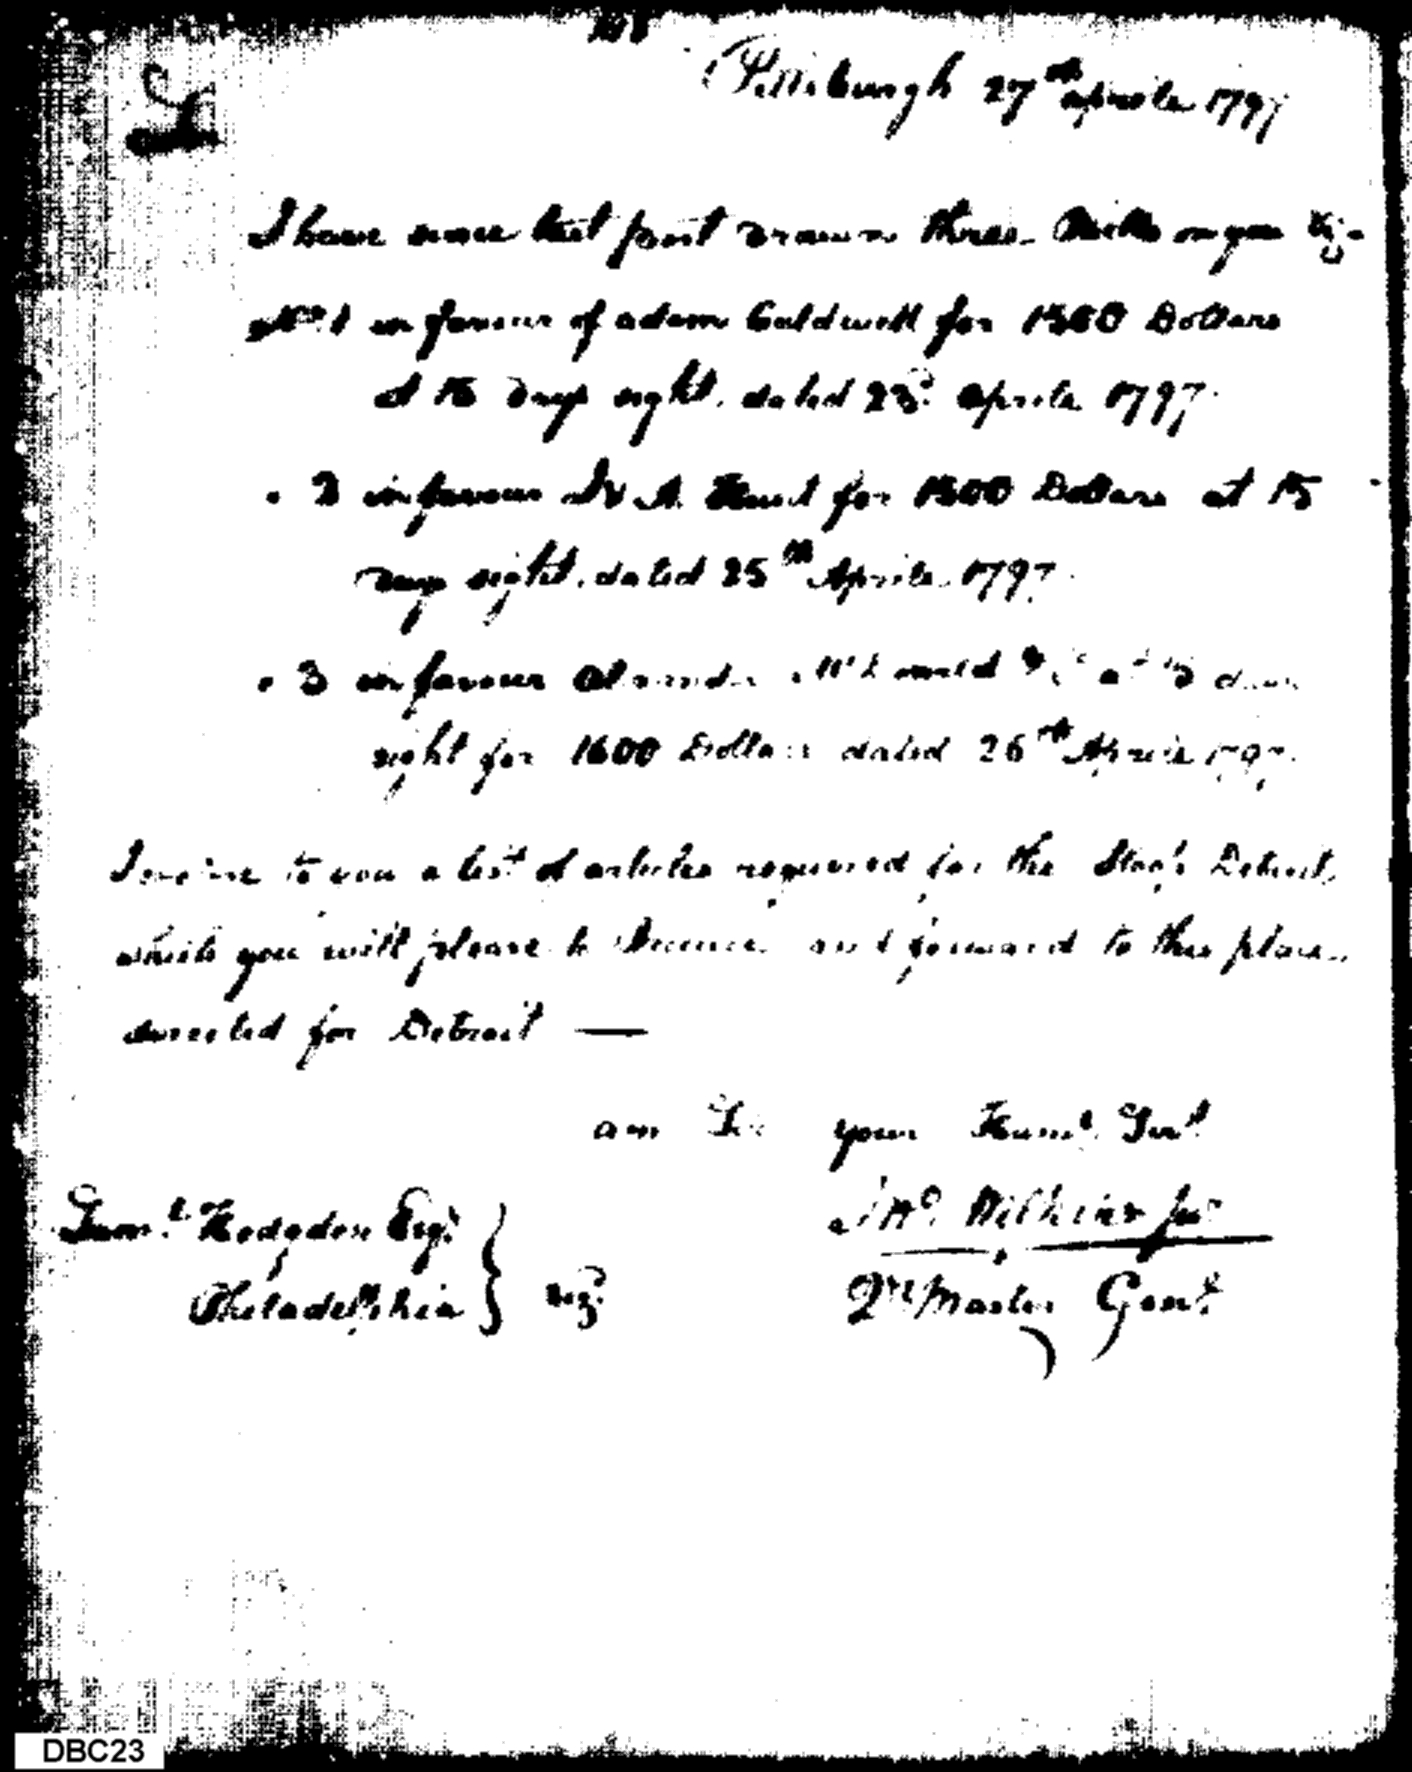 Pittsburgh 27th aprile 1797
Sir
I have since last post drawn three Bills on you Viz.
No. 1 in favour of adam Caldwell for 1500 Dollars
at 15 days sight. dated 23d. aprile 1797
" 2 in favour A. Hunt for 1500 Dollars at 15
days sight. dated 25th Aprile 1797
" 3 in favour at days
sight for 1600 Dollars dated 26th Aprile 1797.
I to you a list of articles required for the Detroit,
which you will please to and forward to this place
directed for Detroit —
am Sir your Humt. Sert.
Saml. Hodgdon Esqr.
Philadelphia
Jno. Wilkins Jur
Qr Master Genl.
DBC23